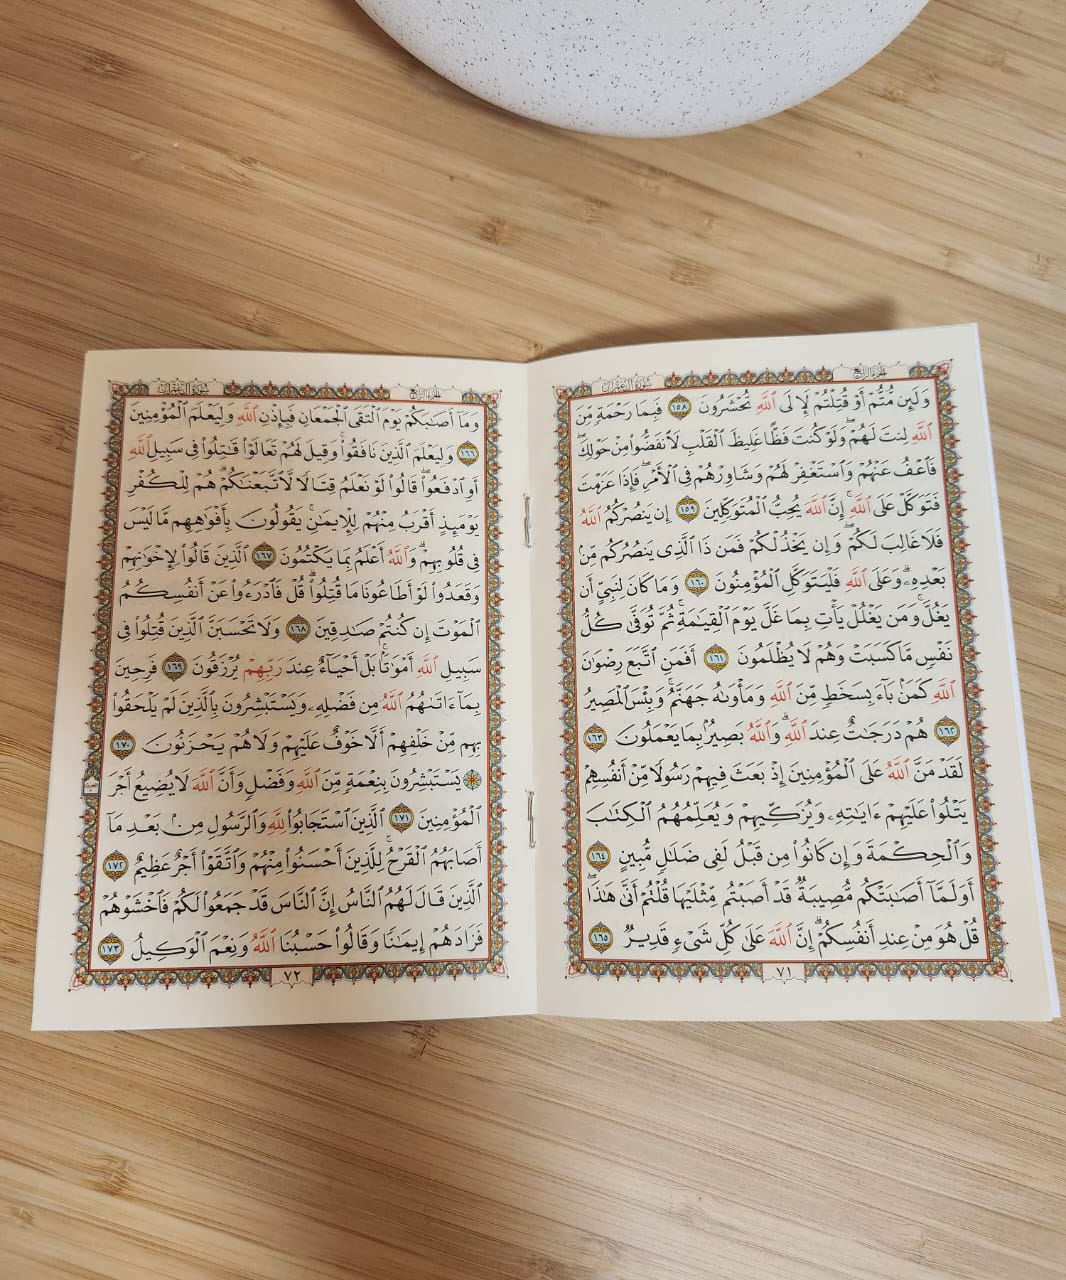 سورة آل عمران
الجزء الرابع
وَلَئِن مُّتُّمْ أَوْ قُتِلْتُمْ لَإِلَى ٱللَّهِ تُحْشَرُونَ ١٥٨ فَبِمَا رَحْمَةٍ مِّنَ
ٱللَّهِ لِنتَ لَهُمْ ۖ وَلَوْ كُنتَ فَظًّا غَلِيظَ ٱلْقَلْبِ لَٱنفَضُّوا۟ مِنْ حَوْلِكَ ۖ
فَٱعْفُ عَنْهُمْ وَٱسْتَغْفِرْ لَهُمْ وَشَاوِرْهُمْ فِى ٱلْأَمْرِ ۖ فَإِذَا عَزَمْتَ
فَتَوَكَّلْ عَلَى ٱللَّهِ ۚ إِنَّ ٱللَّهَ يُحِبُّ ٱلْمُتَوَكِّلِينَ ١٥٩ إِن يَنصُرْكُمُ ٱللَّهُ
فَلَا غَالِبَ لَكُمْ ۖ وَإِن يَخْذُلْكُمْ فَمَن ذَا ٱلَّذِى يَنصُرُكُم مِّنۢ
بَعْدِهِۦ ۗ وَعَلَى ٱللَّهِ فَلْيَتَوَكَّلِ ٱلْمُؤْمِنُونَ ١٦٠ وَمَا كَانَ لِنَبِىٍّ أَن
يَغُلَّ ۚ وَمَن يَغْلُلْ يَأْتِ بِمَا غَلَّ يَوْمَ ٱلْقِيَٰمَةِ ۚ ثُمَّ تُوَفَّىٰ كُلُّ
نَفْسٍ مَّا كَسَبَتْ وَهُمْ لَا يُظْلَمُونَ ١٦١ أَفَمَنِ ٱتَّبَعَ رِضْوَٰنَ
ٱللَّهِ كَمَنۢ بَآءَ بِسَخَطٍ مِّنَ ٱللَّهِ وَمَأْوَىٰهُ جَهَنَّمُ ۚ وَبِئْسَ ٱلْمَصِيرُ
١٦٢ هُمْ دَرَجَٰتٌ عِندَ ٱللَّهِ ۗ وَٱللَّهُ بَصِيرٌۢ بِمَا يَعْمَلُونَ ١٦٣
لَقَدْ مَنَّ ٱللَّهُ عَلَى ٱلْمُؤْمِنِينَ إِذْ بَعَثَ فِيهِمْ رَسُولًا مِّنْ أَنفُسِهِمْ
يَتْلُوا۟ عَلَيْهِمْ ءَايَٰتِهِۦ وَيُزَكِّيهِمْ وَيُعَلِّمُهُمُ ٱلْكِتَٰبَ
وَٱلْحِكْمَةَ وَإِن كَانُوا۟ مِن قَبْلُ لَفِى ضَلَٰلٍ مُّبِينٍ ١٦٤
أَوَلَمَّآ أَصَٰبَتْكُم مُّصِيبَةٌ قَدْ أَصَبْتُم مِّثْلَيْهَا قُلْتُمْ أَنَّىٰ هَٰذَا ۖ
قُلْ هُوَ مِنْ عِندِ أَنفُسِكُمْ ۗ إِنَّ ٱللَّهَ عَلَىٰ كُلِّ شَىْءٍ قَدِيرٌ ١٦٥
٧١
سورة آل عمران
الجزء الرابع
وَمَآ أَصَٰبَكُمْ يَوْمَ ٱلْتَقَى ٱلْجَمْعَانِ فَبِإِذْنِ ٱللَّهِ وَلِيَعْلَمَ ٱلْمُؤْمِنِينَ
١٦٦ وَلِيَعْلَمَ ٱلَّذِينَ نَافَقُوا۟ ۚ وَقِيلَ لَهُمْ تَعَالَوْا۟ قَٰتِلُوا۟ فِى سَبِيلِ ٱللَّهِ
أَوِ ٱدْفَعُوا۟ ۖ قَالُوا۟ لَوْ نَعْلَمُ قِتَالًا لَّٱتَّبَعْنَٰكُمْ ۗ هُمْ لِلْكُفْرِ
يَوْمَئِذٍ أَقْرَبُ مِنْهُمْ لِلْإِيمَٰنِ ۚ يَقُولُونَ بِأَفْوَٰهِهِم مَّا لَيْسَ
فِى قُلُوبِهِمْ ۗ وَٱللَّهُ أَعْلَمُ بِمَا يَكْتُمُونَ ١٦٧ ٱلَّذِينَ قَالُوا۟ لِإِخْوَٰنِهِمْ
وَقَعَدُوا۟ لَوْ أَطَاعُونَا مَا قُتِلُوا۟ ۗ قُلْ فَٱدْرَءُوا۟ عَنْ أَنفُسِكُمُ
ٱلْمَوْتَ إِن كُنتُمْ صَٰدِقِينَ ١٦٨ وَلَا تَحْسَبَنَّ ٱلَّذِينَ قُتِلُوا۟ فِى
سَبِيلِ ٱللَّهِ أَمْوَٰتًۢا ۚ بَلْ أَحْيَآءٌ عِندَ رَبِّهِمْ يُرْزَقُونَ ١٦٩ فَرِحِينَ
بِمَآ ءَاتَىٰهُمُ ٱللَّهُ مِن فَضْلِهِۦ وَيَسْتَبْشِرُونَ بِٱلَّذِينَ لَمْ يَلْحَقُوا۟
بِهِم مِّنْ خَلْفِهِمْ أَلَّا خَوْفٌ عَلَيْهِمْ وَلَا هُمْ يَحْزَنُونَ ١٧٠
۞ يَسْتَبْشِرُونَ بِنِعْمَةٍ مِّنَ ٱللَّهِ وَفَضْلٍ وَأَنَّ ٱللَّهَ لَا يُضِيعُ أَجْرَ
ٱلْمُؤْمِنِينَ ١٧١ ٱلَّذِينَ ٱسْتَجَابُوا۟ لِلَّهِ وَٱلرَّسُولِ مِنۢ بَعْدِ مَآ
أَصَابَهُمُ ٱلْقَرْحُ ۚ لِلَّذِينَ أَحْسَنُوا۟ مِنْهُمْ وَٱتَّقَوْا۟ أَجْرٌ عَظِيمٌ ١٧٢
ٱلَّذِينَ قَالَ لَهُمُ ٱلنَّاسُ إِنَّ ٱلنَّاسَ قَدْ جَمَعُوا۟ لَكُمْ فَٱخْشَوْهُمْ
فَزَادَهُمْ إِيمَٰنًا وَقَالُوا۟ حَسْبُنَا ٱللَّهُ وَنِعْمَ ٱلْوَكِيلُ ١٧٣
٧٢